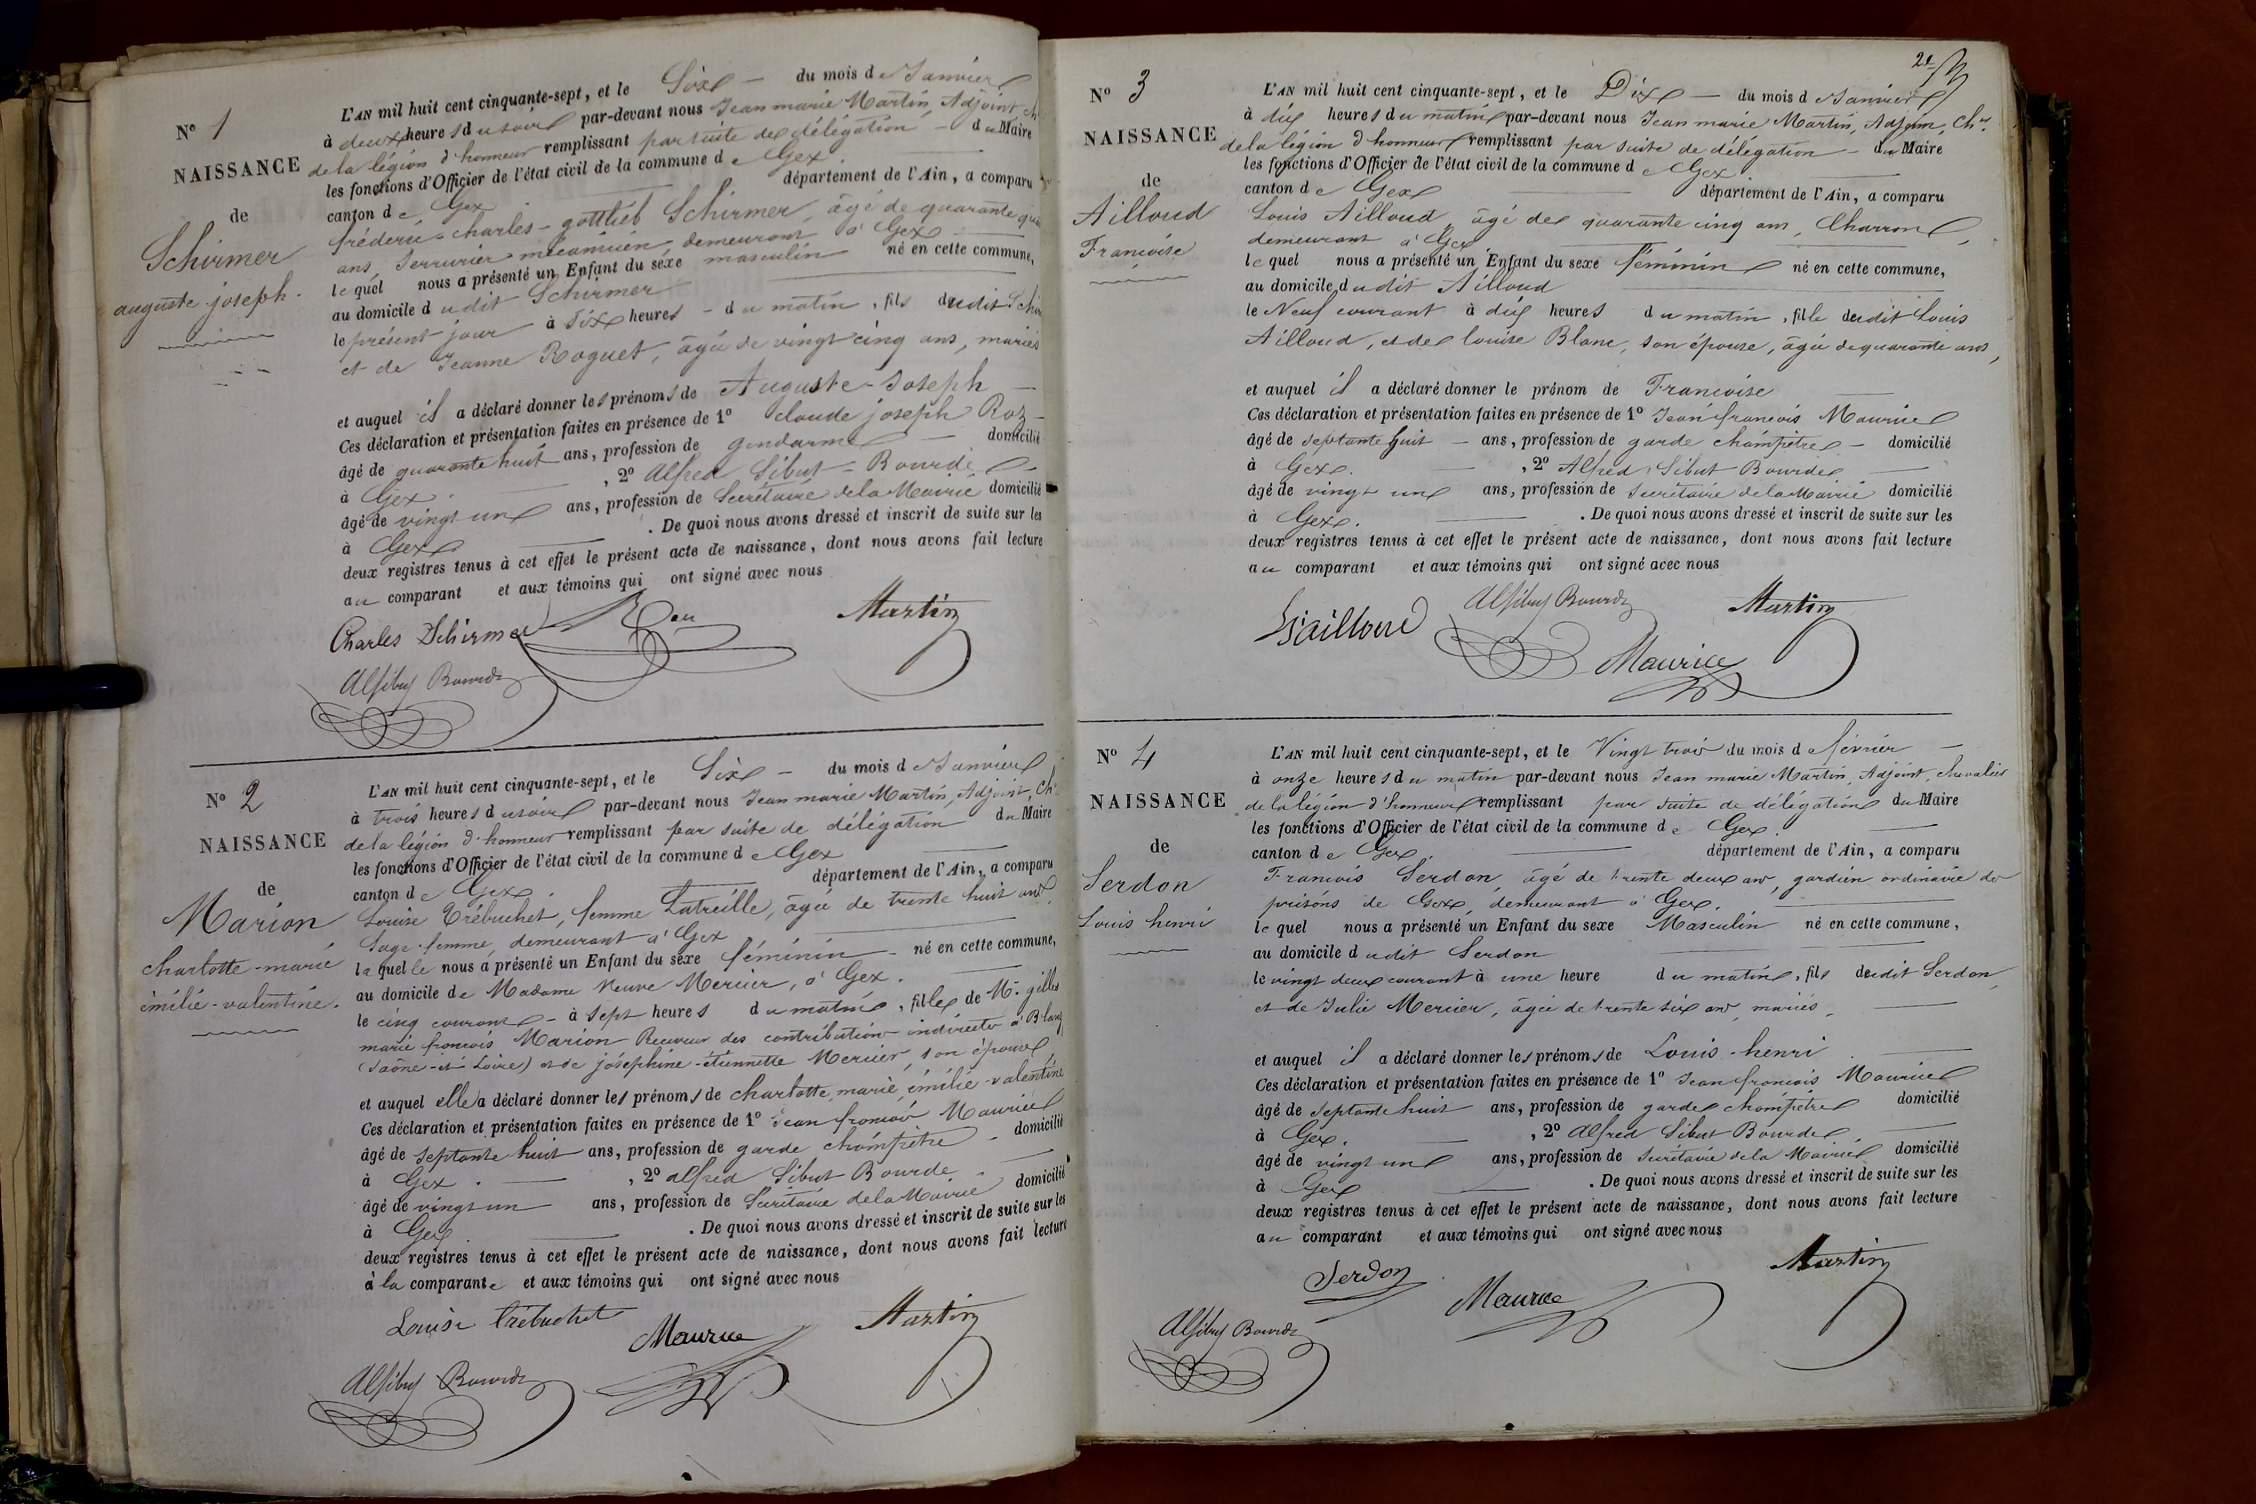 N° 1
NAISSANCE
de
Schirmer
auguste joseph.
L'AN mil huit cent cinquante-sept, et le Six — du mois de Janvier
à deux heures du soir par-devant nous Jean marie Martin, Adjoint, Ch
de la légion d'honneur remplissant par suite de délégation — du Maire
les fonctions d'Officier de l'état civil de la commune de Gex.
canton de Gex département de l'Ain, a comparu
fréderic-charles-gottlieb Schirmer, âgé de quarante
ans, Serrurier mécanicien demeurant à Gex
lequel nous a présenté un Enfant du sexe masculin né en cette commune,
au domicile dudit Schirmer
le présent jour à dix heures - du matin, fils dudit
et de Jeanne Roguet, âgée de vingt cinq ans, mariés
et auquel il a déclaré donner les prénoms de Auguste-Joseph —
Ces déclaration et présentation faites en présence de 1° Claude joseph Roz —
âgé de quarante huit ans, profession de gendarme — domicilié
à Gex. — , 2° Alfred Sibut-Bourde —
âgé de vingt un ans, profession de Secrétaire de la Mairie domicilié
à Gex — . De quoi nous avons dressé et inscrit de suite sur les
deux registres tenus à cet effet le présent acte de naissance, dont nous avons fait lecture
au comparant et aux témoins qui ont signé avec nous
Charles Schirmer Martin
Alf Sibut Bourde
N° 2
NAISSANCE
de
Marion
charlotte-marie
émilie-valentine.
L'AN mil huit cent cinquante-sept, et le Six — du mois de Janvier
à trois heures du soir par-devant nous Jean marie Martin, Adjoint, Ch
de la légion d'honneur remplissant par suite de délégation du Maire
les fonctions d'Officier de l'état civil de la commune de Gex
canton de Gex. département de l'Ain, a comparu
Louise Trébuchet, femme Latreille, âgée de trente huit ans
Sage-femme, demeurant à Gex
laquelle nous a présenté un Enfant du sexe féminin — né en cette commune,
au domicile de Madame Veuve Mercier, à Gex.
le cinq courant — à sept heures du matin, fille de Mr. gilles
marie françois Marion Receveur des contributions indirectes à
(Saône-et-Loire) et de joséphine-étiennette Mercier, son épouse
et auquel elle a déclaré donner les prénoms de charlotte, marie, émilie-valentine
Ces déclaration et présentation faites en présence de 1° Jean françois Maurice
âgé de septante huit ans, profession de garde champêtre — domicilié
à Gex. — , 2° alfred Sibut Bourde.
âgé de vingt un ans, profession de Secrétaire de la Mairie domicilié
à Gex. — . De quoi nous avons dressé et inscrit de suite sur les
deux registres tenus à cet effet le présent acte de naissance, dont nous avons fait lecture
à la comparante et aux témoins qui ont signé avec nous
Louise trébuchet Maurice Martin
Alf Sibut Bourde
N° 3
NAISSANCE
de
Ailloud
Françoise
L'AN mil huit cent cinquante-sept, et le Dix — du mois de Janvier
à dix heures du matin par-devant nous Jean marie Martin, Adjoint, Chr.
de la légion d'honneur remplissant par suite de délégation — du Maire
les fonctions d'Officier de l'état civil de la commune de Gex
canton de Gex département de l'Ain, a comparu
Louis Ailloud âgé de quarante cinq ans, Charron,
demeurant à Gex.
lequel nous a présenté un Enfant du sexe féminin né en cette commune,
au domicile dudit Ailloud
le Neuf courant à dix heures du matin, fille dudit Louis
Ailloud, et de louise Blanc, son épouse, âgée de quarante ans,
et auquel il a déclaré donner le prénom de Françoise
Ces déclaration et présentation faites en présence de 1° Jean françois Maurice
âgé de septante huit — ans, profession de garde champêtre — domicilié
à Gex. — , 2° Alfred Sibut Bourde —
âgé de vingt un ans, profession de Secrétaire de la Mairie domicilié
à Gex. — . De quoi nous avons dressé et inscrit de suite sur les
deux registres tenus à cet effet le présent acte de naissance, dont nous avons fait lecture
au comparant et aux témoins qui ont signé acec nous
Alf Sibut Bourde Martin
Maurice
N° 4
NAISSANCE
de
Serdon
Louis henri
L'AN mil huit cent cinquante-sept, et le Vingt trois du mois de février —
à onze heures du matin par-devant nous Jean marie Martin, Adjoint, chevalier
de la légion d'honneur remplissant par suite de délégation du Maire
les fonctions d'Officier de l'état civil de la commune de Gex.
canton de Gex. département de l'Ain, a comparu
François Serdon, âgé de trente deux ans, gardien ordinaire des
prisons de Gex, demeurant à Gex.
lequel nous a présenté un Enfant du sexe Masculin né en cette commune,
au domicile dudit Serdon
le vingt deux courant à une heure du matin, fils dudit Serdon,
et de Julie Mercier, âgée de trente six ans, mariés,
et auquel il a déclaré donner les prénoms de Louis-henri
Ces déclaration et présentation faites en présence de 1° Jean françois Maurice
âgé de septante huit ans, profession de garde champêtre domicilié
à Gex. — , 2° Alfred Sibut Bourde. —
âgé de vingt un ans, profession de Secrétaire de la Mairie domicilié
à Gex — . De quoi nous avons dressé et inscrit de suite sur les
deux registres tenus à cet effet le présent acte de naissance, dont nous avons fait lecture
au comparant et aux témoins qui ont signé avec nous
Serdon Maurice Martin
Alf Sibut Bourde